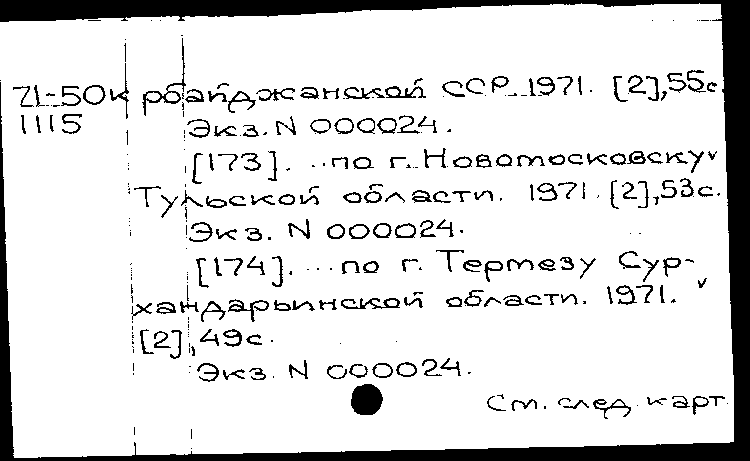 71-50к рбайджанской ССР. 1971. [2],55с.
1115
Экз. N 000024.
[173]. ...по г. Новомосковску
Тульской области. 1971. [2],53с.
Экз. N 000024.
[174]. ...по г. Термезу Сур-
хандарьинской области. 1971.
[2],49с.
Экз. N 000024.
См. след. карт.